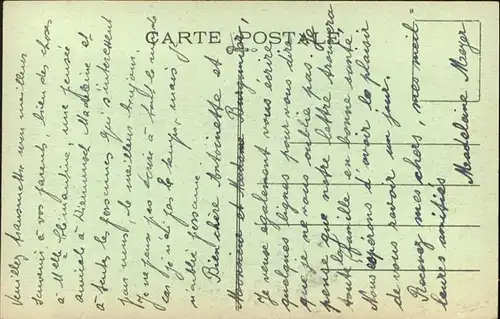 CARTE POSTALE
Bien chère Antoinette et
Monsieur et Madame Bourguignon,
Je veux également vous écrire
quelques lignes pour vous dire
que je ne vous oublie pas. Je
pense que notre lettre trouvera
toute la famille en bonne santé.
Nous espérons d'avoir le plaisir
de vous revoir un jour.
Recevez mes chers, mes meil-
leures amitiés
Madeleine Meyer
Veuillez transmettre mon meilleur
souvenir à vos parents, bien des choses
à Melle Clémentine, une pensée
amicale à Madeleine et
à toutes les personnes qui s'intéressent
pour nous, le meilleur bonjour.
Je ne peux pas écrire à tout le monde
car je n'ai pas le temps, mais je
n'oublie personne.